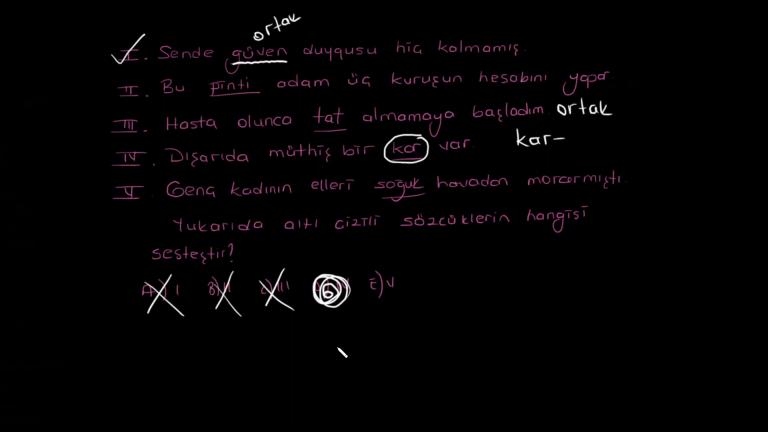 ortak
I. Sende güven duygusu hiç kalmamış.
II. Bu pinti adam üç kuruşun hesabını yapar
III. Hasta olunca tat almamaya başladım ortak
IV. Dışarıda müthiş bir kar var kar-
V. Genç kadının elleri soğuk havadan morarmıştı.
Yukarıda altı çizili sözcüklerin hangisi
sesteştir?
A) I B) II C) III E) V